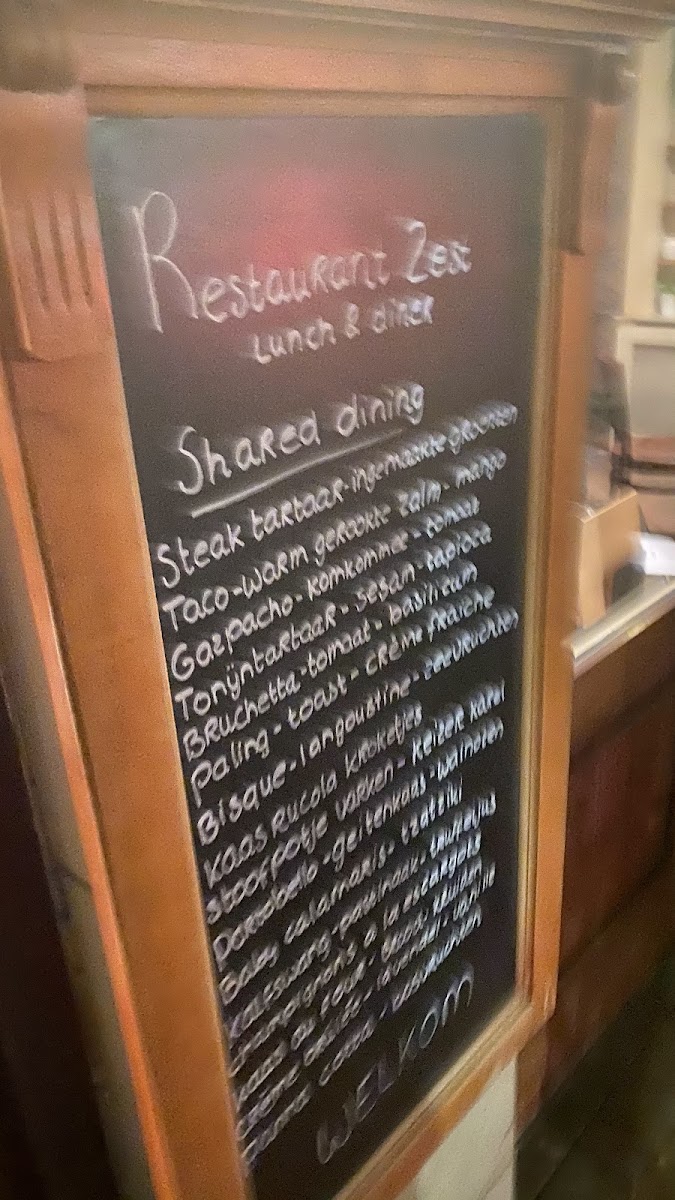 Restaurant Zest
Lunch & diner
Shared dining
Steak tartaar-ingemaakte groenten
Taco-warm gerookte zalm - mango
Gazpacho - komkommer - tomaat
Tonijntartaar - sesam - tapioca
Bruchetta - tomaat - basilicum
Paling - toast - crème fraiche
Bisque - langoustine - zeevruchten
Kaas Rucola kroketjes
Stoofpotje varken - keizer karel
Portobello - geitenkaas - walnoten
Baby calamaris - tzatziki
Kalfswang - pastinaak - truffeljus
Champignons a la escargots
au four -
Crème brulée - lavendel - vanille
WELKOM